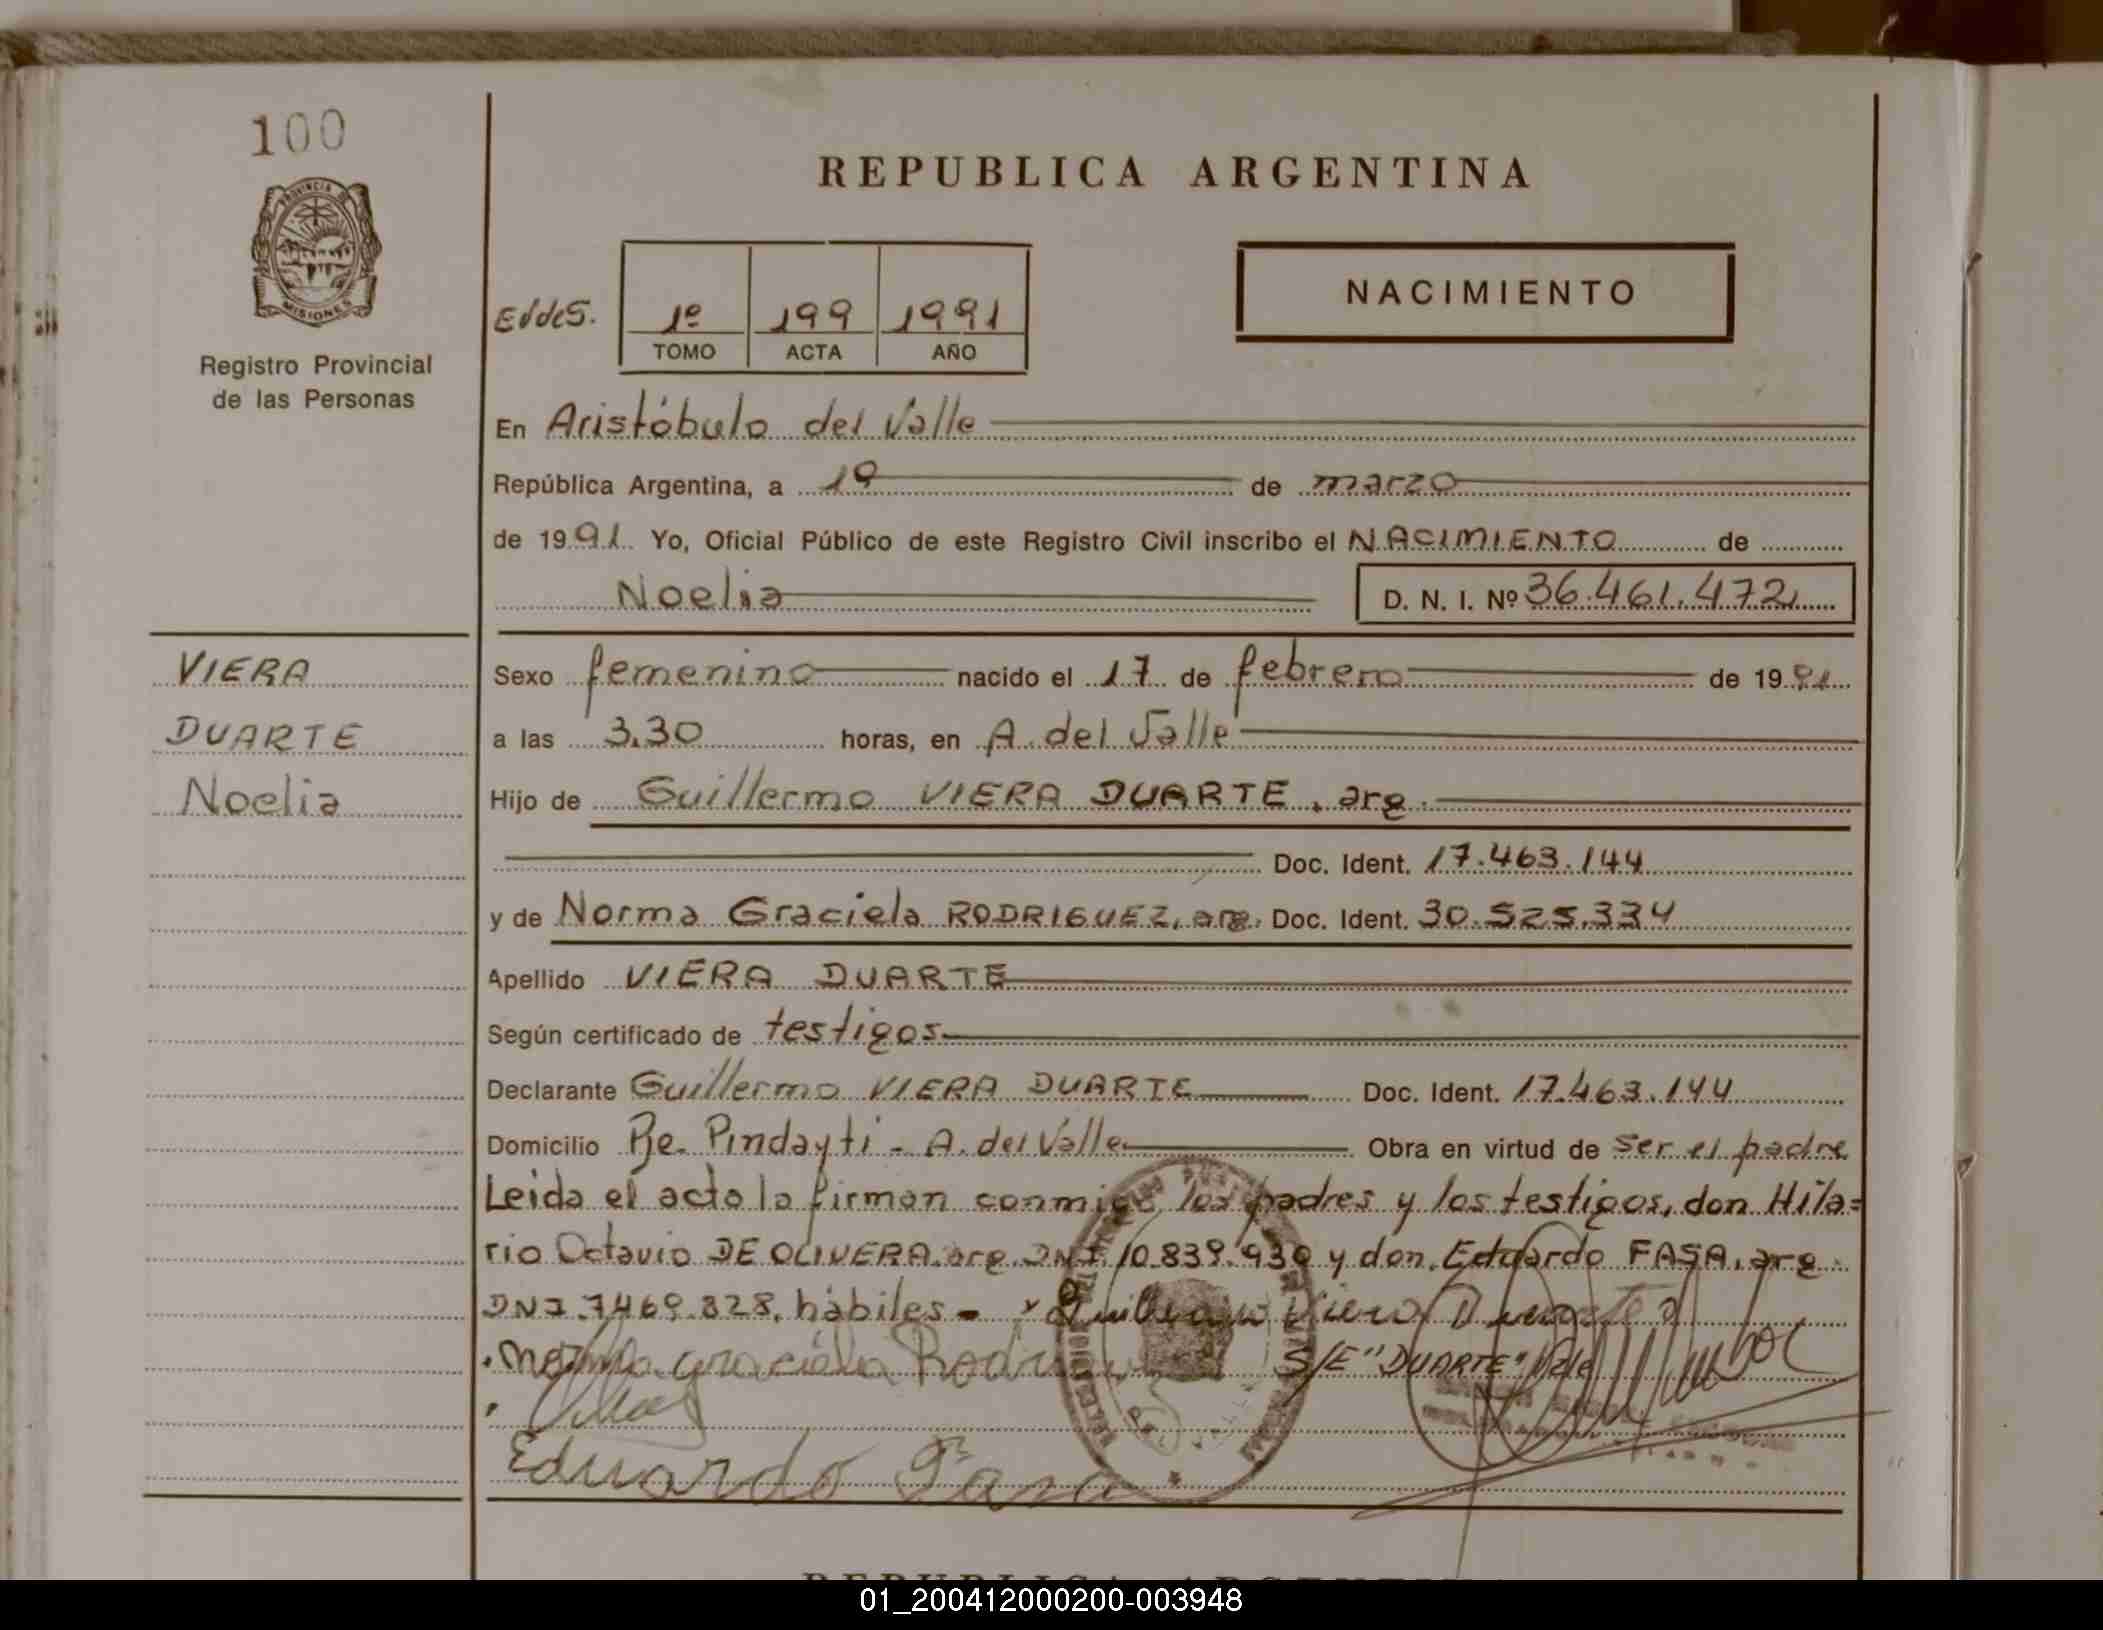 100
REPUBLICA ARGENTINA
PROVINCIA DE
MISIONES
NACIMIENTO
1º 199 1991
TOMO ACTA AÑO
Registro Provincial
de las Personas
En Aristóbulo del Valle
República Argentina, a 19 de marzo
de 1991. Yo, Oficial Público de este Registro Civil inscribo el NACIMIENTO de
Noelia D. N. I. Nº 36.461.472
VIERA
DUARTE
Noelia
Sexo femenino nacido el 17 de febrero de 1991
a las 3.30 horas, en A. del Valle
Hijo de Guillermo VIERA DUARTE, arg.
Doc. Ident. 17.463.144
y de Norma Graciela RODRIGUEZ, arg. Doc. Ident. 30.525.334
Apellido VIERA DUARTE
Según certificado de testigos
Declarante Guillermo VIERA DUARTE Doc. Ident. 17.463.144
Domicilio Pje. Pindayti - A. del Valle Obra en virtud de ser el padre
Leida el acta la firman conmigo los padres y los testigos, don Hila=
rio Octavio DE OLIVERA, arg. DNI 10.839.930 y don Eduardo FASA, arg.
DNI 7469.828, hábiles - Guillermo Viera Duarte
Norma Graciela Rodri S/E "DUARTE" Vale
Eduardo Fasa
REPUBLICA ARGENTINA
01_200412000200-003948